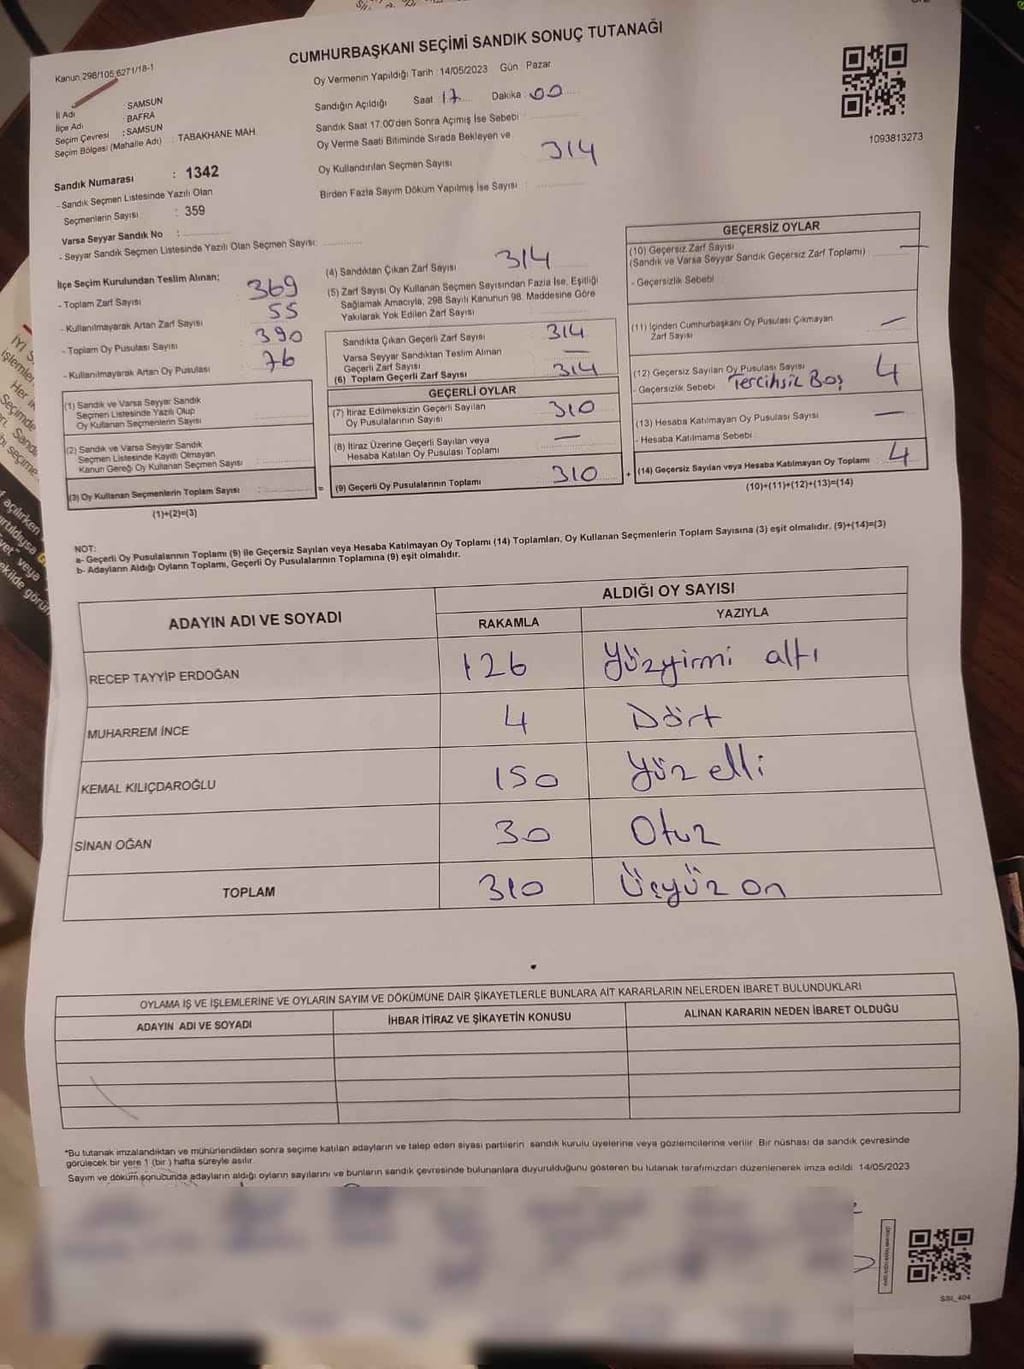 CUMHURBAŞKANI SEÇİMİ SANDIK SONUÇ TUTANAĞI
Kanun:298/105,6271/18-1
Oy Vermenin Yapıldığı Tarih : 14/05/2023 Gün : Pazar
İl Adı : SAMSUN
İlçe Adı : BAFRA
Seçim Çevresi : SAMSUN
Seçim Bölgesi (Mahalle Adı) : TABAKHANE MAH.
Sandığın Açıldığı Saat 17 Dakika 00
Sandık Saat 17.00'den Sonra Açımış İse Sebebi
Oy Verme Saati Bitiminde Sırada Bekleyen ve
Oy Kullandırılan Seçmen Sayısı 314
Birden Fazla Sayım Döküm Yapılmış İse Sayısı :
1093813273
Sandık Numarası : 1342
- Sandık Seçmen Listesinde Yazılı Olan
Seçmenlerin Sayısı : 359
Varsa Seyyar Sandık No :
- Seyyar Sandık Seçmen Listesinde Yazılı Olan Seçmen Sayısı:
İlçe Seçim Kurulundan Teslim Alınan;
- Toplam Zarf Sayısı 369
- Kullanılmayarak Artan Zarf Sayısı 55
- Toplam Oy Pusulası Sayısı 390
- Kullanılmayarak Artan Oy Pusulası 76
(1) Sandık ve Varsa Seyyar Sandık
Seçmen Listesinde Yazılı Olup
Oy Kullanan Seçmenlerin Sayısı
(2) Sandık ve Varsa Seyyar Sandık
Seçmen Listesinde Kayıtlı Olmayan
Kanun Gereği Oy Kullanan Seçmen Sayısı
(3) Oy Kullanan Seçmenlerin Toplam Sayısı :
(1)+(2)=(3)
(4) Sandıktan Çıkan Zarf Sayısı 314
(5) Zarf Sayısı Oy Kullanan Seçmen Sayısından Fazla İse, Eşitliği
Sağlamak Amacıyla, 298 Sayılı Kanunun 98. Maddesine Göre
Yakılarak Yok Edilen Zarf Sayısı
Sandıkta Çıkan Geçerli Zarf Sayısı 314
Varsa Seyyar Sandıktan Teslim Alınan
Geçerli Zarf Sayısı —
(6) Toplam Geçerli Zarf Sayısı 314
GEÇERLİ OYLAR
(7) İtiraz Edilmeksizin Geçerli Sayılan
Oy Pusulalarının Sayısı 310
(8) İtiraz Üzerine Geçerli Sayılan veya
Hesaba Katılan Oy Pusulası Toplamı —
= (9) Geçerli Oy Pusulalarının Toplamı 310 +
GEÇERSİZ OYLAR
(10) Geçersiz Zarf Sayısı —
(Sandık ve Varsa Seyyar Sandık Geçersiz Zarf Toplamı)
- Geçersizlik Sebebi
(11) İçinden Cumhurbaşkanı Oy Pusulası Çıkmayan
Zarf Sayısı —
(12) Geçersiz Sayılan Oy Pusulası Sayısı 4
- Geçersizlik Sebebi Tercihsiz Boş
(13) Hesaba Katılmayan Oy Pusulası Sayısı —
- Hesaba Katılmama Sebebi
(14) Geçersiz Sayılan veya Hesaba Katılmayan Oy Toplamı 4
(10)+(11)+(12)+(13)=(14)
NOT:
a- Geçerli Oy Pusulalarının Toplamı (9) ile Geçersiz Sayılan veya Hesaba Katılmayan Oy Toplamı (14) Toplamları, Oy Kullanan Seçmenlerin Toplam Sayısına (3) eşit olmalıdır. (9)+(14)=(3)
b- Adayların Aldığı Oyların Toplamı, Geçerli Oy Pusulalarının Toplamına (9) eşit olmalıdır.
ADAYIN ADI VE SOYADI
ALDIĞI OY SAYISI
RAKAMLA YAZIYLA
RECEP TAYYİP ERDOĞAN 126 Yüzyirmi altı
MUHARREM İNCE 4 Dört
KEMAL KILIÇDAROĞLU 150 Yüz elli
SİNAN OĞAN 30 Otuz
TOPLAM 310 Üçyüz on
OYLAMA İŞ VE İŞLEMLERİNE VE OYLARIN SAYIM VE DÖKÜMÜNE DAİR ŞİKAYETLERLE BUNLARA AİT KARARLARIN NELERDEN İBARET BULUNDUKLARI
ADAYIN ADI VE SOYADI İHBAR İTİRAZ VE ŞİKAYETİN KONUSU ALINAN KARARIN NEDEN İBARET OLDUĞU
*Bu tutanak imzalandıktan ve mühürlendikten sonra seçime katılan adayların ve talep eden siyasi partilerin sandık kurulu üyelerine veya gözlemcilerine verilir. Bir nüshası da sandık çevresinde
görülecek bir yere 1 (bir) hafta süreyle asılır.
Sayım ve döküm sonucunda adayların aldığı oyların sayılarını ve bunların sandık çevresinde bulunanlara duyurulduğunu gösteren bu tutanak tarafımızdan düzenlenerek imza edildi. 14/05/2023